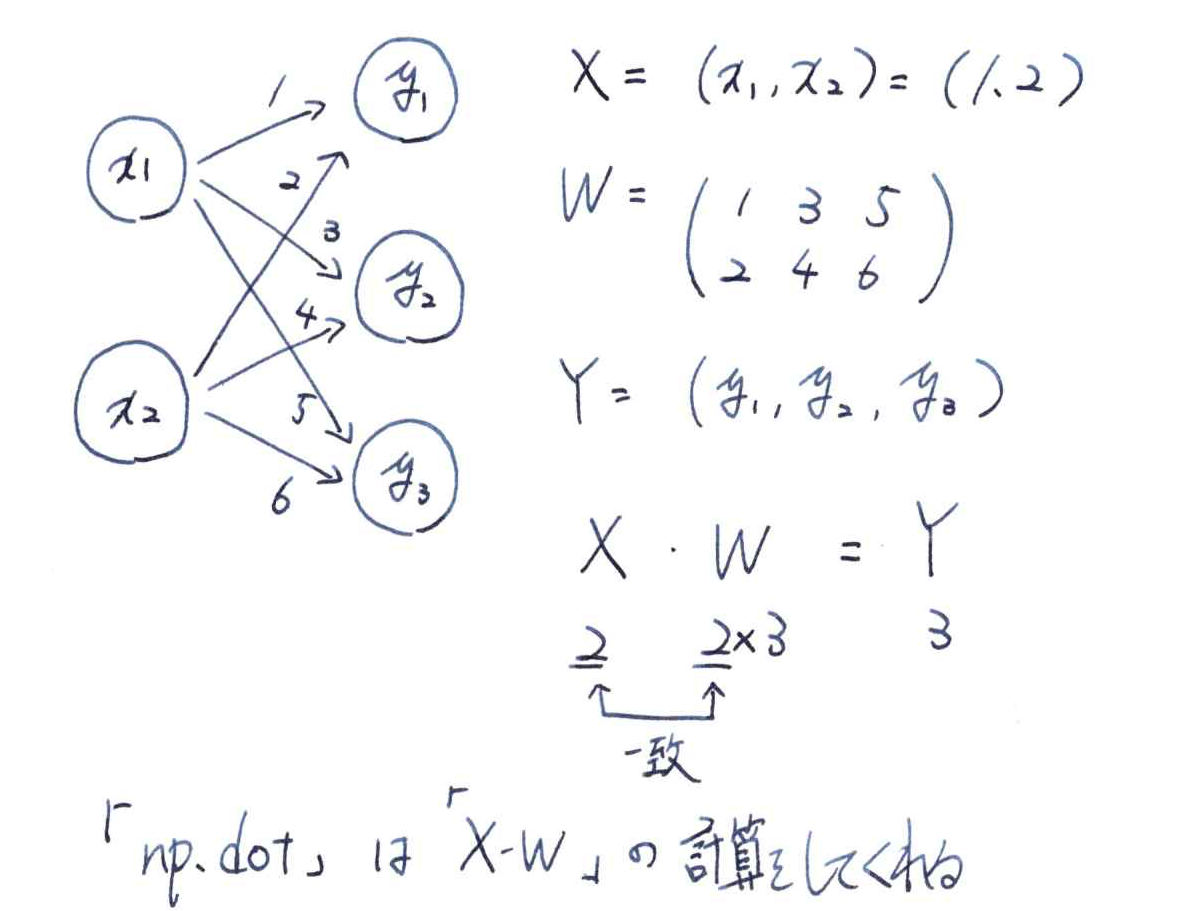 x1
x2
y1
y2
y3
1
2
3
4
5
6
X = (x1, x2) = (1. 2)
W = ( 1 3 5
2 4 6 )
Y = (y1, y2, y3)
X · W = Y
2 2×3 3
一致
「np.dot」は「X-W」の計算をしてくれる